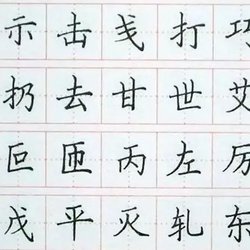 示击戋打巧
扔去甘世艾
叵匝丙左厉
戊平灭轧东